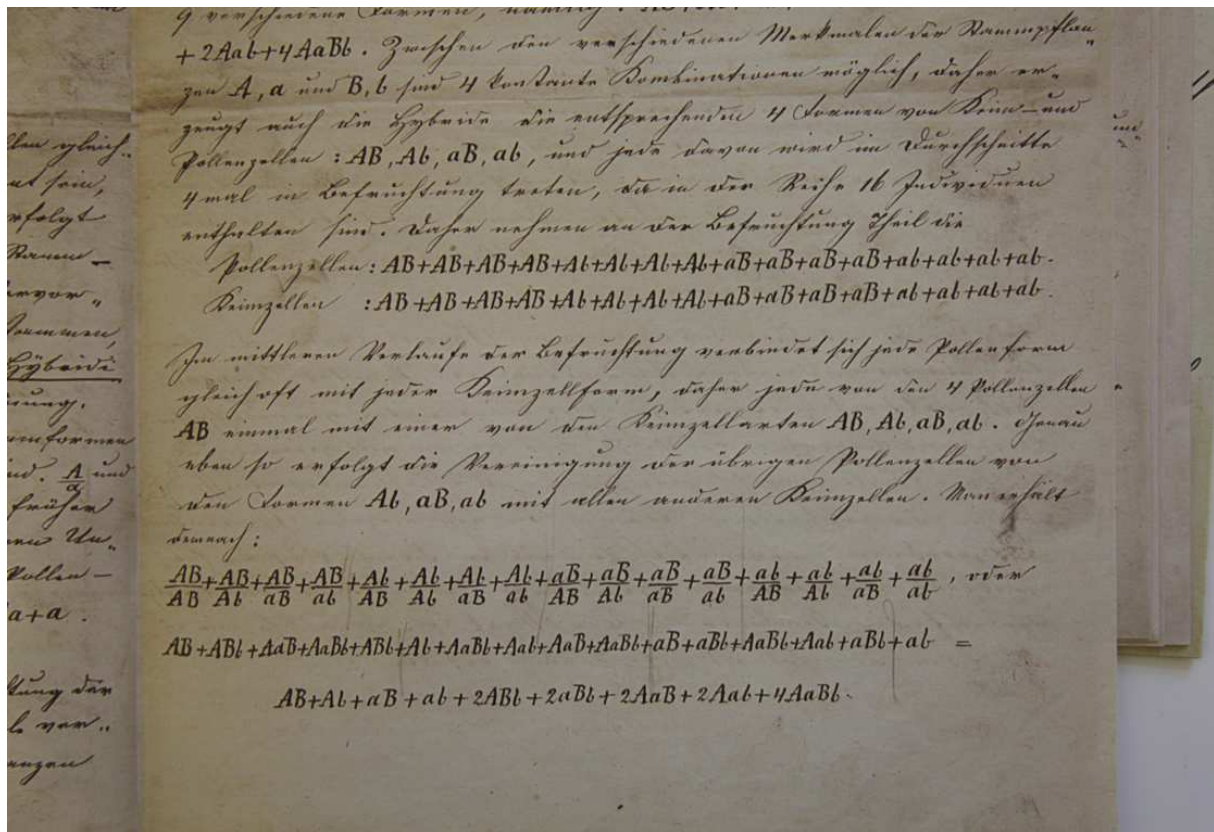 len gleich-
nt sein,
rfolgt
Stamm-
ervor-
stammen,
Hybride
rung.
mformen
nd. A/a und
früher
ren Un-
Pollen-
a+a.
tung der
le vor-
anzen
9 verschiedene Formen, nämlich:
+ 2Aab+4AaBb. Zwischen den verschiedenen Merkmalen der Stammpflan-
zen A, a und B, b sind 4 konstante Kombinationen möglich, daher er-
zeugt auch die Hybride die entsprechenden 4 Formen von Keim- und
Pollenzellen: AB, Ab, aB, ab, und jede davon wird im Durchschnitte
4mal in Befruchtung treten, da in der Reihe 16 Individuen
enthalten sind. Daher nehmen an der Befruchtung Theil die
Pollenzellen: AB+AB+AB+AB+Ab+Ab+Ab+Ab+aB+aB+aB+aB+ab+ab+ab+ab.
Keimzellen : AB+AB+AB+AB+Ab+Ab+Ab+Ab+aB+aB+aB+aB+ab+ab+ab+ab.
Im mittleren Verlaufe der Befruchtung verbindet sich jede Pollenform
gleich oft mit jeder Keimzellform, daher jede von den 4 Pollenzellen
AB einmal mit einer von den Keimzellarten AB, Ab, aB, ab. Genau
eben so erfolgt die Vereinigung der übrigen Pollenzellen von
den Formen Ab, aB, ab mit allen anderen Keimzellen. Man erhält
demnach:
AB/AB + AB/Ab + AB/aB + AB/ab + Ab/AB + Ab/Ab + Ab/aB + Ab/ab + aB/AB + aB/Ab + aB/aB + aB/ab + ab/AB + ab/Ab + ab/aB + ab/ab, oder
AB+ABb+AaB+AaBb+ABb+Ab+AaBb+Aab+AaB+AaBb+aB+aBb+AaBb+Aab+aBb+ab =
AB+Ab+aB+ab+2ABb+2aBb+2AaB+2Aab+4AaBb.